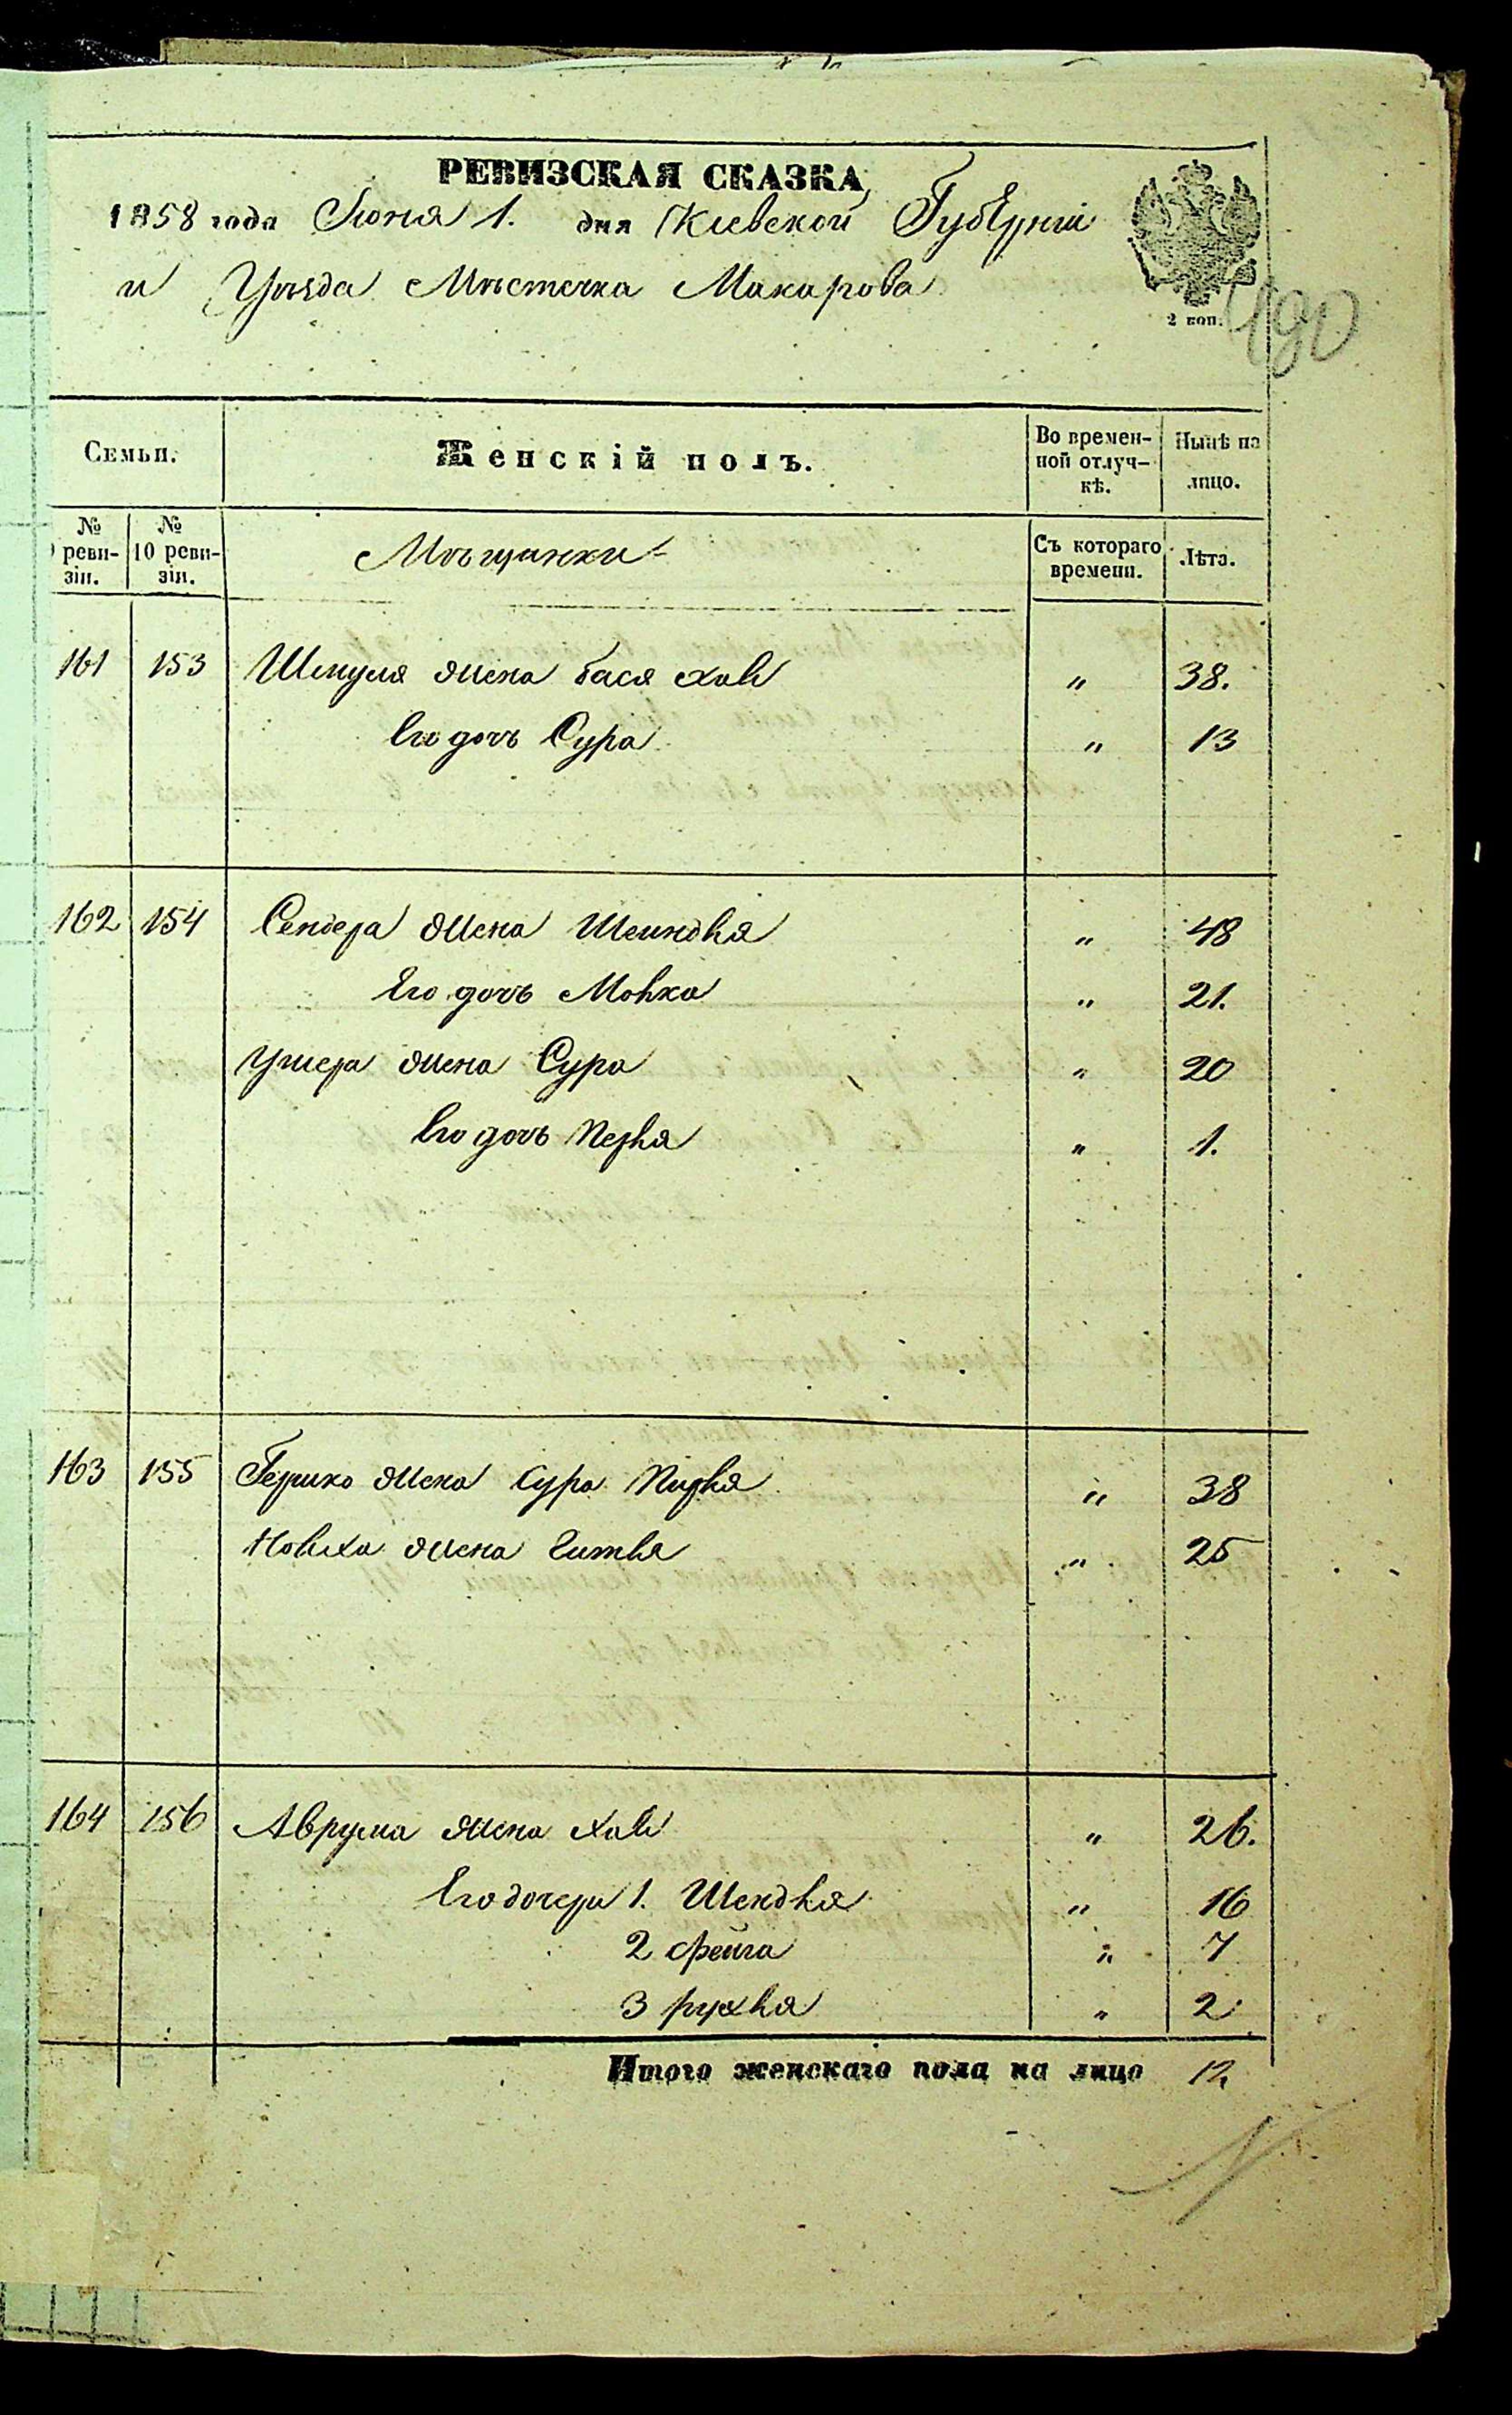 РЕВИЗСКАЯ СКАЗКА,
1858 года Іюня 1. дня Кіевской Губерніи
и Уѣзда Мѣстечка Макарова
2 коп.
490
Семьи.
Женскій полъ.
Во времен-
ной отлуч-
кѣ.
Нынѣ на
лицо.
№
реви-
зіи.
№
10 реви-
зіи.
Мѣщанки
Съ котораго
времени.
Лѣта.
161 153 Шмуля жена Бася Хая " 38.
Его дочь Сура " 13
162 154 Сендера жена Шейндля " 48
Его дочь Молка " 21.
Ушера жена Сура " 20
Его дочь Перля " 1.
163 155 Гершко жена Сура Пирля " 38
жена Гитля " 25
164 156 Аврума жена Хая " 26.
Его дочери 1. Шендля " 16
2 Фейга " 7
3 Рухля " 2
Итого женскаго пола на лицо 12